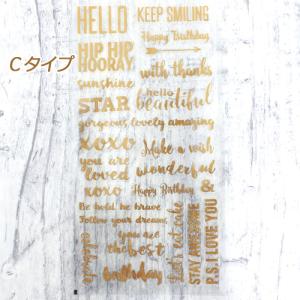 Cタイプ
HELLO
KEEP SMILING
Happy Birthday
HIP HIP
HOORAY
with thanks
sunshine
hello
beautiful
STAR
gorgeous lovely amazing
xoxo
you are
loved
xoxo
Make a wish
wonderful
Happy Birthday
&
Be bold be brave
Follow your dreams,
you are
the best
celebrate
birthday
Let's eat cake
STAY AWESOME
P.S. I LOVE YOU